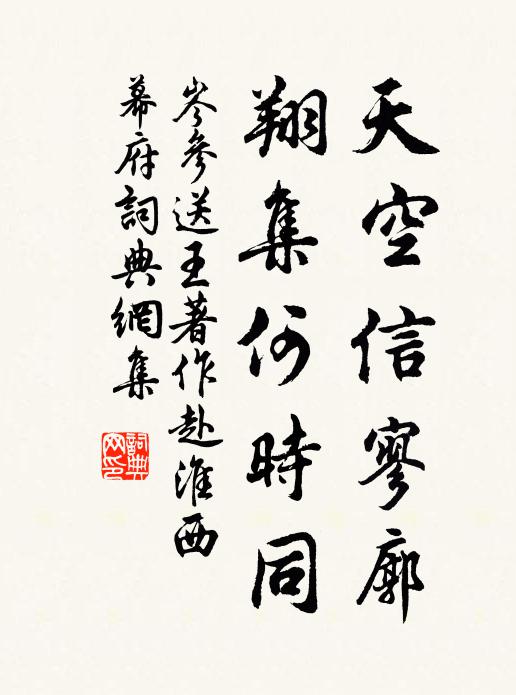 天空信寥廓
翔集何時同
岑參送王著作赴淮西
幕府詞典網集
詞典网印